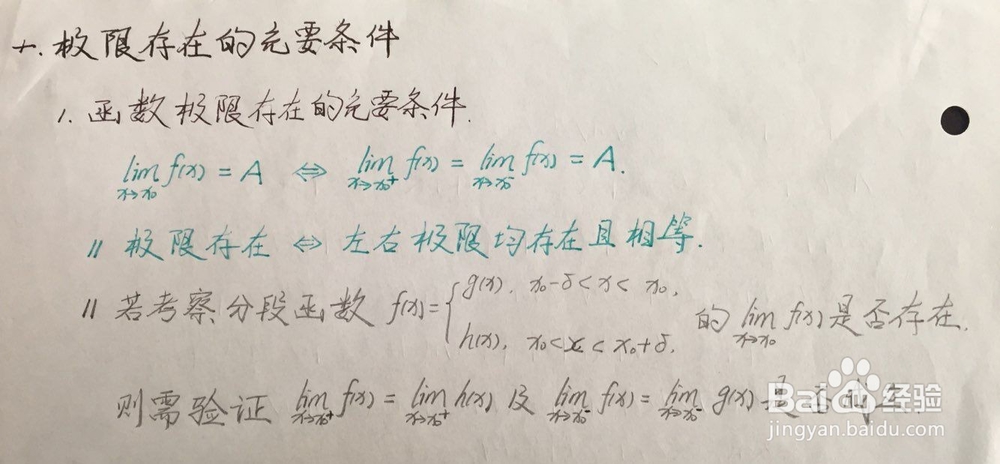 十. 极限存在的充要条件
1. 函数极限存在的充要条件.
lim x→x₀ f(x) = A ⇔ lim x→x₀⁺ f(x) = lim x→x₀⁻ f(x) = A.
〃 极限存在 ⇔ 左右极限均存在且相等.
〃 若考察分段函数 f(x)={ g(x), x₀-δ<x<x₀, h(x), x₀<x<x₀+δ, 的 lim x→x₀ f(x) 是否存在.
则需验证 lim x→x₀⁺ f(x) = lim x→x₀⁺ h(x) 及 lim x→x₀⁻ f(x) = lim x→x₀⁻ g(x) 是否
Baidu 经验
jingyan.baidu.com